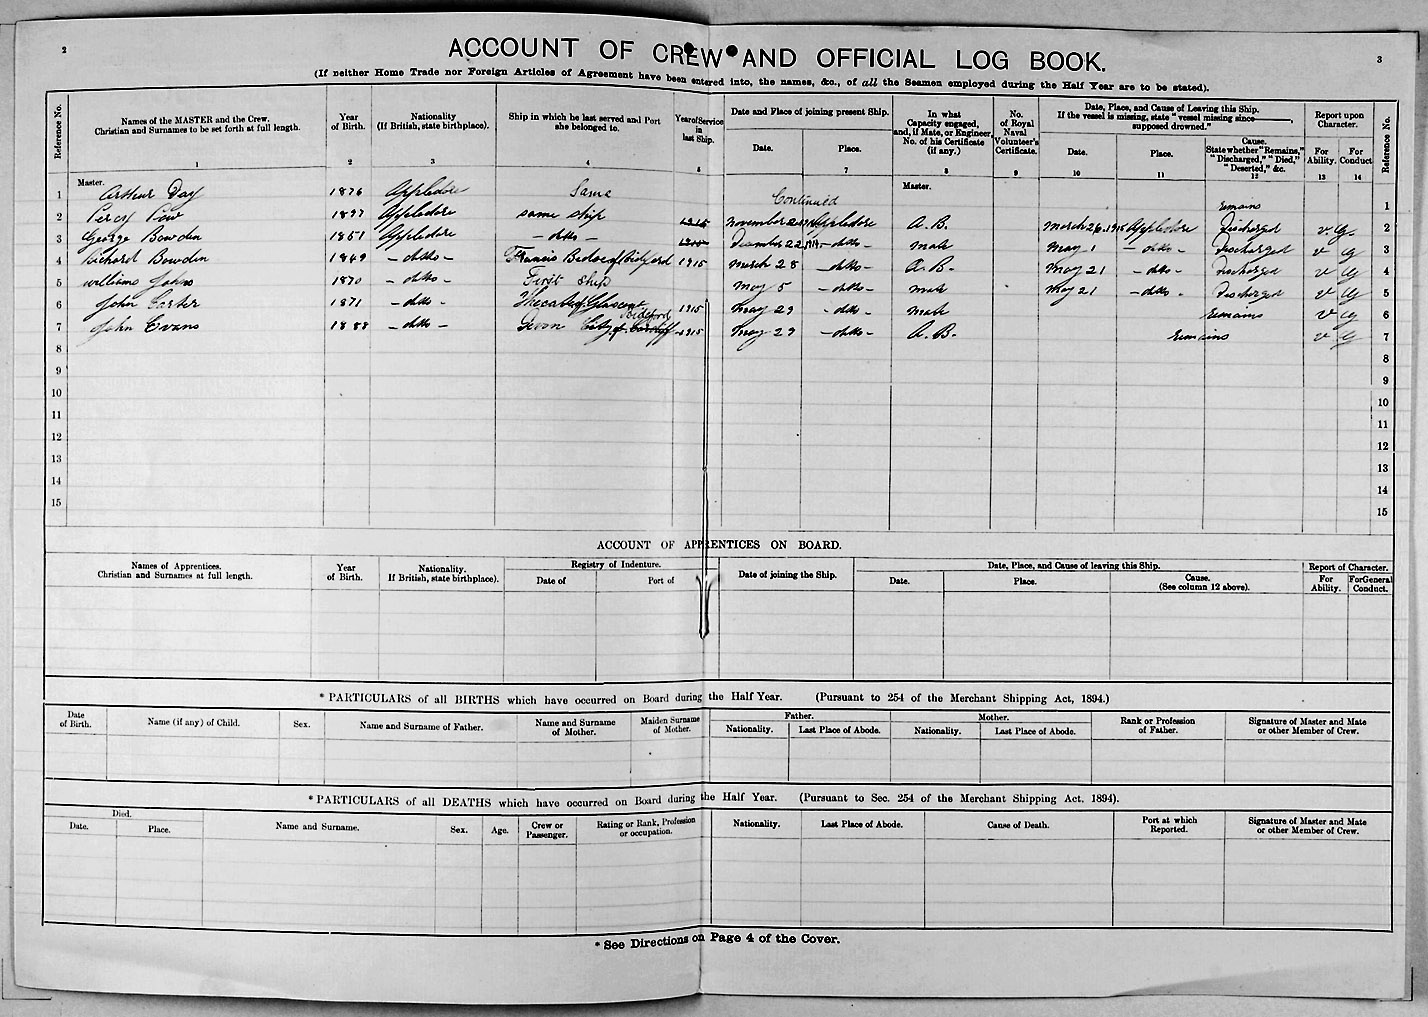 2
ACCOUNT OF CREW AND OFFICIAL LOG BOOK.
3
(If neither Home Trade nor Foreign Articles of Agreement have been entered into, the names, &c., of all the Seamen employed during the Half Year are to be stated).
Reference No.
Names of the MASTER and the Crew.
Christian and Surnames to be set forth at full length.
1
Year
of Birth.
2
Nationality
(If British, state birthplace).
3
Ship in which he last served and Port
she belonged to.
4
Year of Service
in
last Ship.
5
Date and Place of joining present Ship.
Date.
Place.
7
In what
Capacity engaged,
and, if Mate, or Engineer,
No. of his Certificate
(if any.)
8
No.
of Royal
Naval
Volunteer's
Certificate.
9
Date, Place, and Cause of Leaving this Ship.
If the vessel is missing, state "vessel missing since ———,
supposed drowned."
Date.
10
Place.
11
Cause.
State whether "Remains,"
"Discharged," "Died,"
"Deserted," &c.
12
Report upon
Character.
For
Ability.
13
For
Conduct
14
Reference No.
Master.
Master.
1 Arthur Day 1876 Appledore Same Continued remains 1
2 Percy Pow 1897 Appledore same ship 1915 November Appledore A.B. March 26. 1915 Appledore Discharged v g. 2
3 George Bowden 1851 Appledore - ditto - 1915 December 22 - ditto - mate May 1 - ditto - Discharged v g 3
4 Richard Bowden 1849 - ditto - Francis of Bideford 1915 March 28 - ditto - A.B. May 21 - ditto - Discharged v g 4
5 William Johns 1870 - ditto - First ship May 5 - ditto - mate May 21 - ditto - Discharged v g 5
6 John 1871 - ditto - 1915 May 29 - ditto - mate remains v g 6
Bideford
7 John Evans 1888 - ditto - Devon City of Cardiff 1915 May 29 - ditto - A.B. remains v g 7
8 8
9 9
10 10
11 11
12 12
13 13
14 14
15 15
ACCOUNT OF APPRENTICES ON BOARD.
Names of Apprentices.
Christian and Surnames at full length.
Year
of Birth.
Nationality.
If British, state birthplace).
Registry of Indenture.
Date of
Port of
Date of joining the Ship.
Date, Place, and Cause of leaving this Ship.
Date.
Place.
Cause.
(See column 12 above).
Report of Character.
For
Ability.
For General
Conduct.
* PARTICULARS of all BIRTHS which have occurred on Board during the Half Year. (Pursuant to 254 of the Merchant Shipping Act, 1894.)
Date
of Birth.
Name (if any) of Child.
Sex.
Name and Surname of Father.
Name and Surname
of Mother.
Maiden Surname
of Mother.
Father.
Nationality.
Last Place of Abode.
Mother.
Nationality.
Last Place of Abode.
Rank or Profession
of Father.
Signature of Master and Mate
or other Member of Crew.
* PARTICULARS of all DEATHS which have occurred on Board during the Half Year. (Pursuant to Sec. 254 of the Merchant Shipping Act. 1894).
Died.
Date.
Place.
Name and Surname.
Sex.
Age.
Crew or
Passenger.
Rating or Rank, Profession
or occupation.
Nationality.
Last Place of Abode.
Cause of Death.
Port at which
Reported.
Signature of Master and Mate
or other Member of Crew.
* See Directions on Page 4 of the Cover.